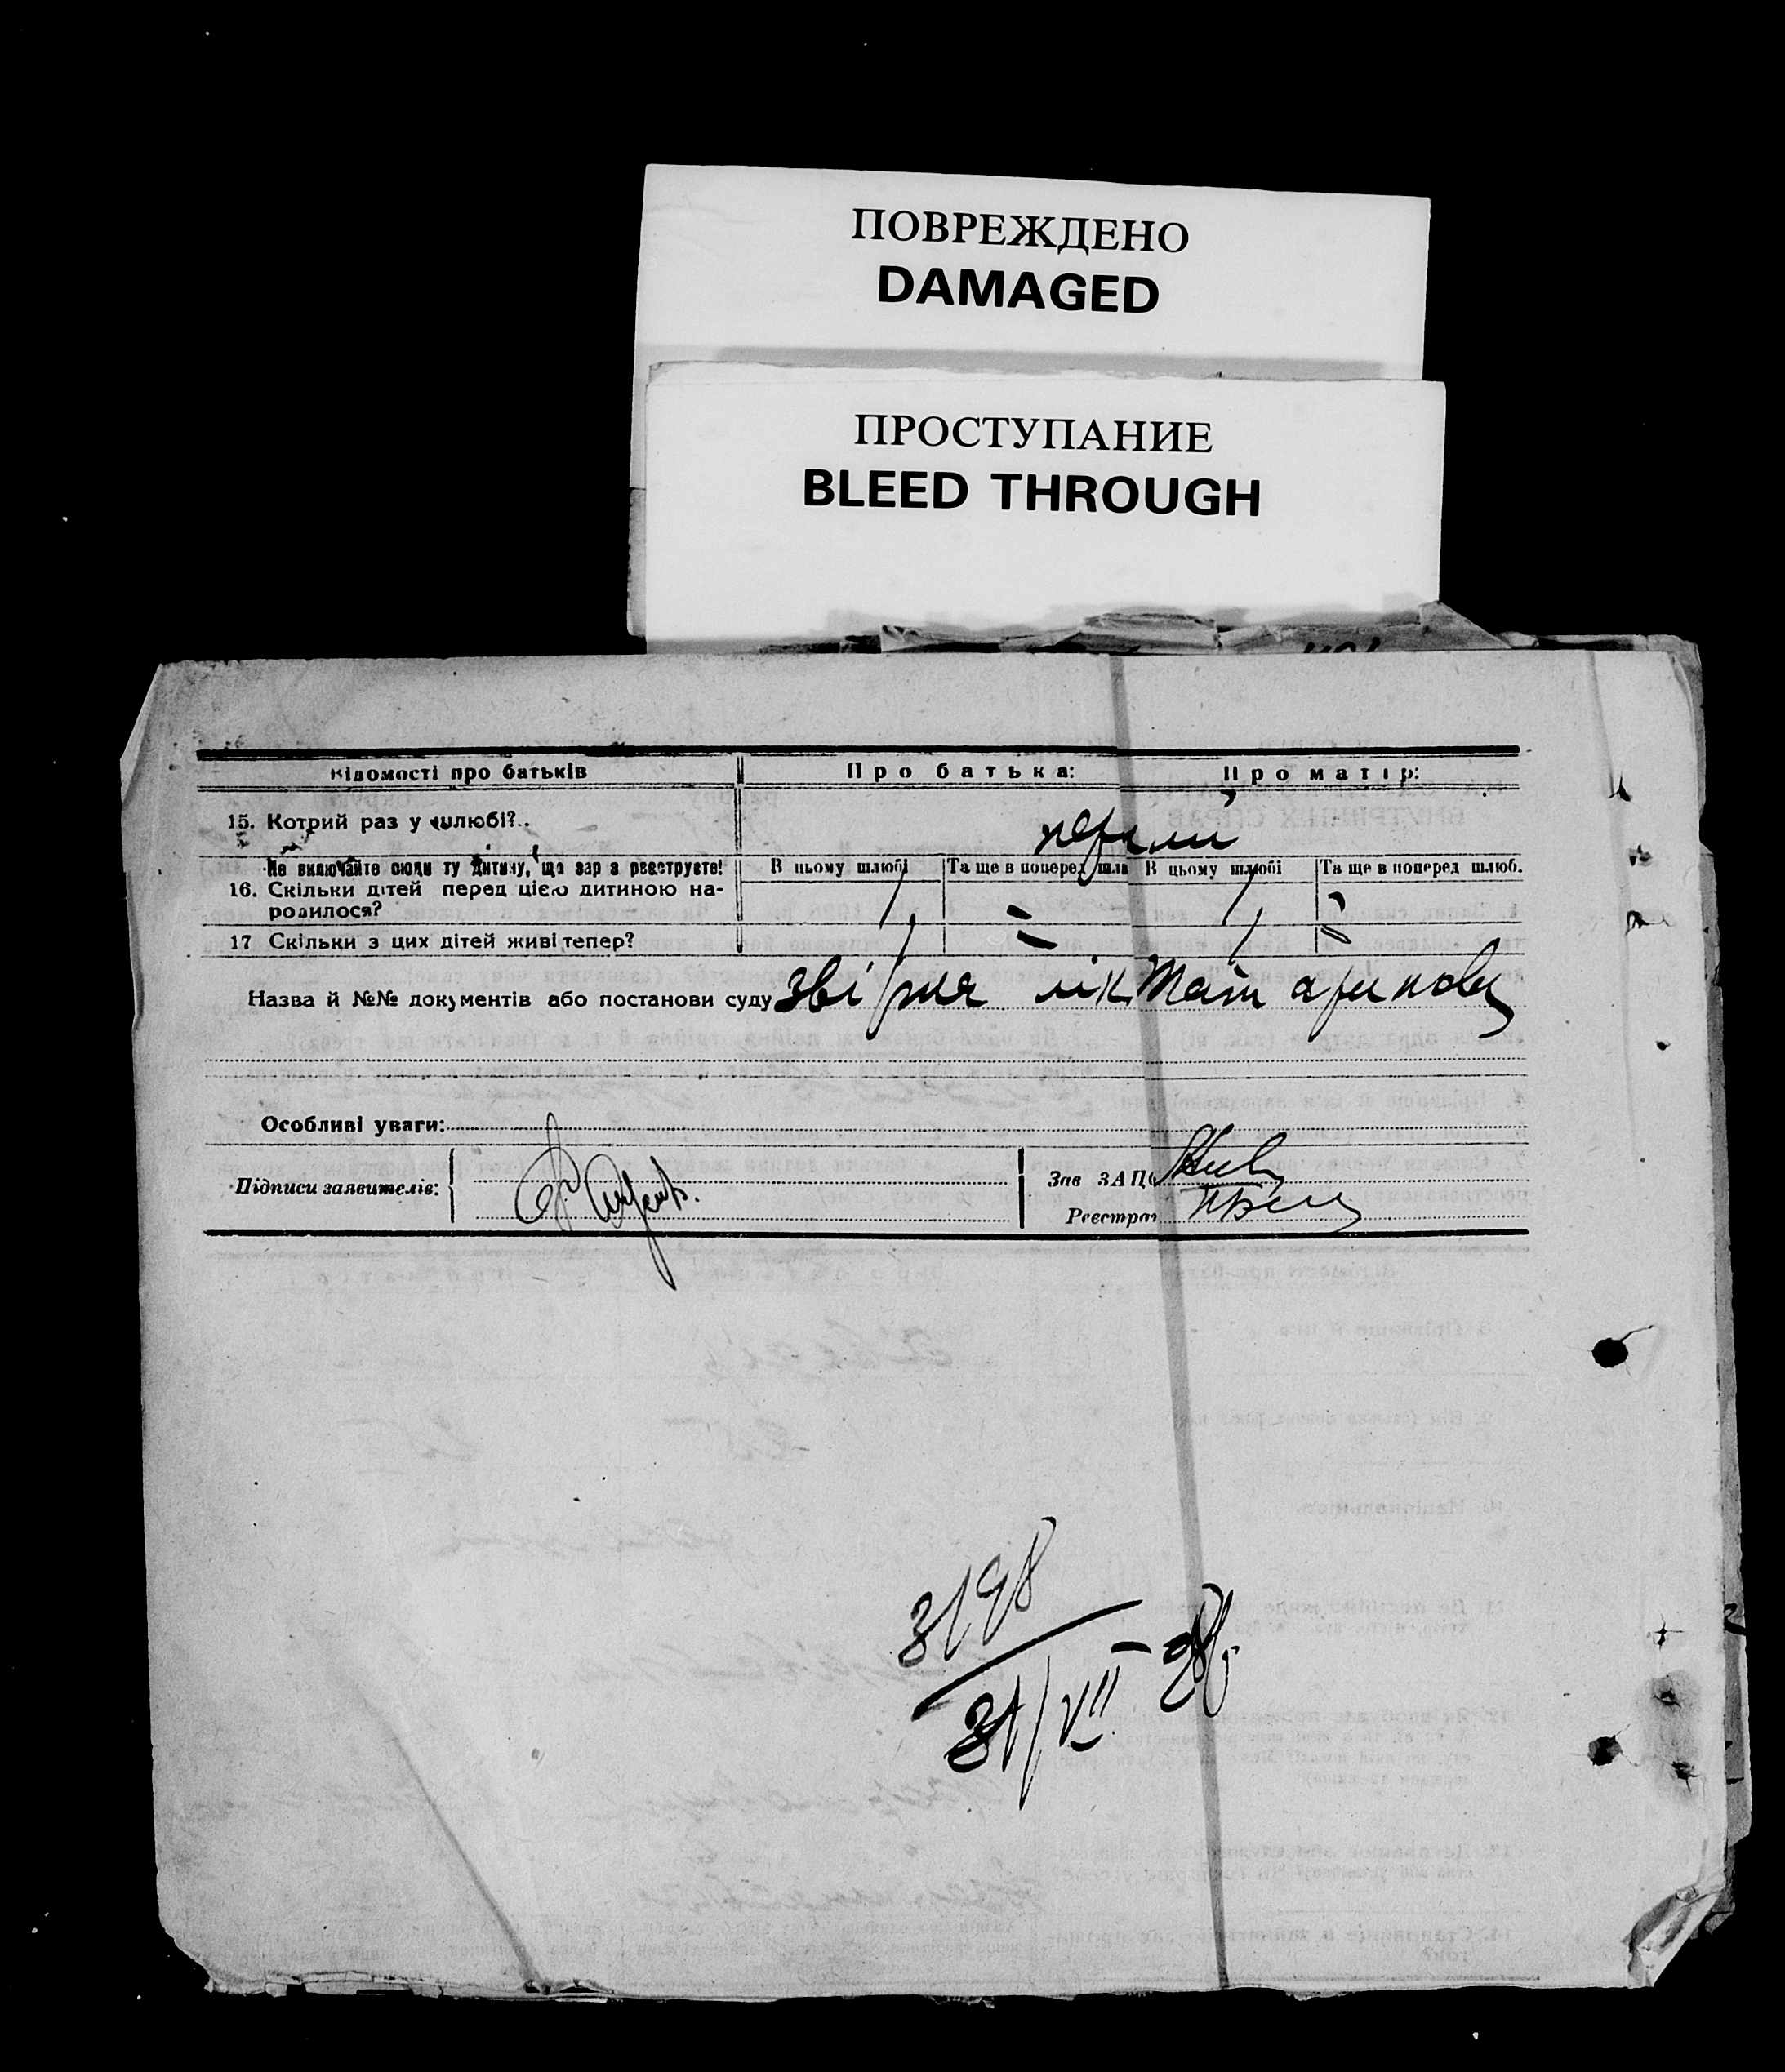 ПОВРЕЖДЕНО
DAMAGED
ПРОСТУПАНИЕ
BLEED THROUGH
Відомості про батьків Про батька: Про матір:
15. Котрий раз у шлюбі?..
Не включайте сюди ту дитину, що зараз реєструєте!
В цьому шлюбі Та ще в поперед шлю В цьому шлюбі Та ще в поперед шлюб.
16. Скільки дітей перед цією дитиною на-
родилося? 1 = 1
17 Скільки з цих дітей живі тепер? 1 = 1 =
Назва й №№ документів або постанови суду
Особливі уваги:
Підписи заявителів:
Зав ЗАЦ
Реєстрат
3198
31/VII - 28